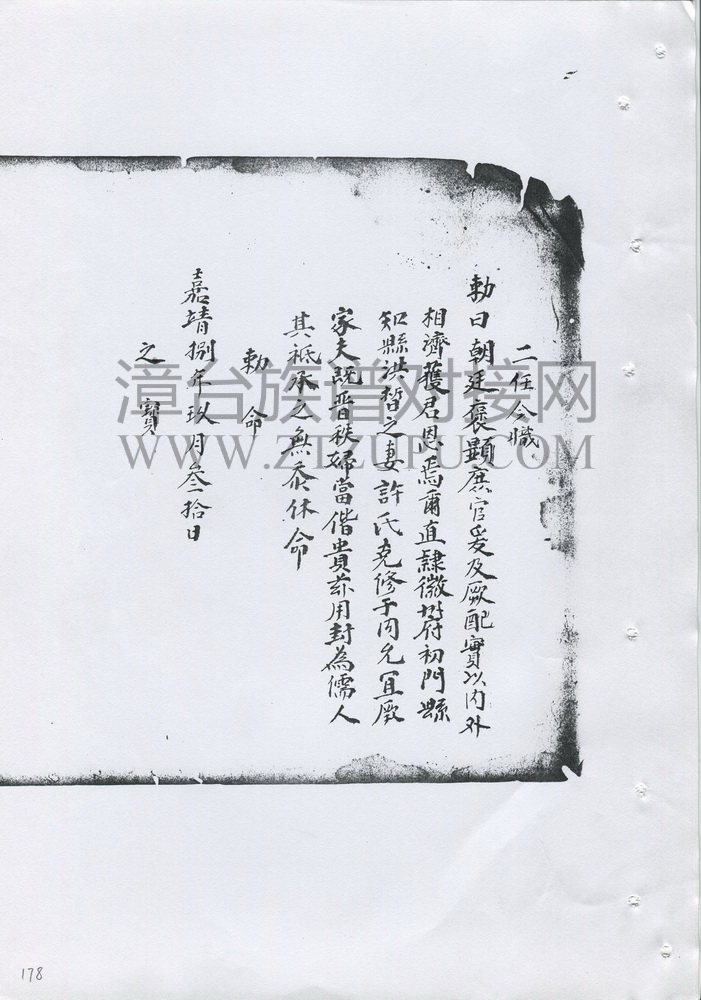 二任今職
勅曰朝廷褒顯庶官爰及厥配實以內外
相濟獲君恩焉爾直隸徽州府初門縣
知縣洪晳之妻許氏克修于內允宜厥
家夫既晉秩婦當偕貴茲用封為儒人
其祗承之無忝休命
勅命
嘉靖捌年玖月叁拾日
之寶
漳台族谱对接网
WWW.ZTZUPU.COM
178